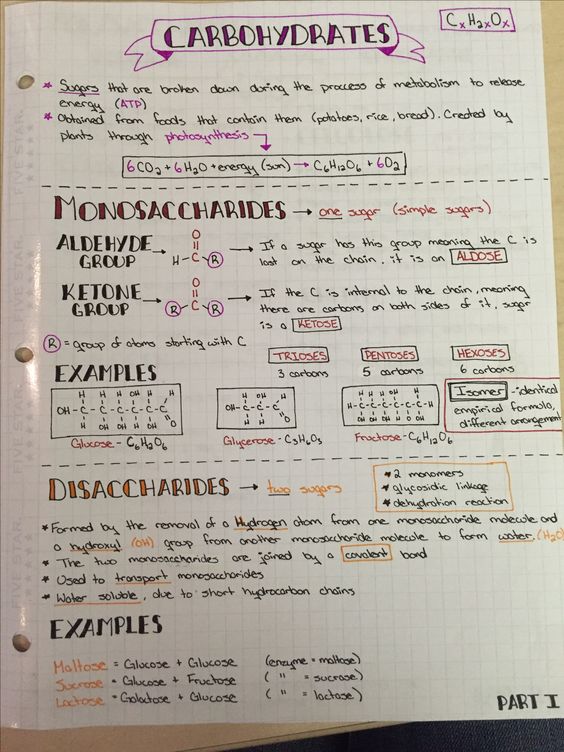 CARBOHYDRATES
CxH2xOx
* Sugars that are broken down during the process of metabolism to release
energy (ATP)
* Obtained from foods that contain them (potatoes, rice, bread). Created by
plants through photosynthesis
6CO2 + 6H2O + energy (sun) → C6H12O6 + 6O2
MONOSACCHARIDES → one sugar (simple sugars)
ALDEHYDE GROUP → H-C-R O → If a sugar has this group meaning the C is
last on the chain, it is an ALDOSE
KETONE GROUP → R-C-R O → If the C is internal to the chain, meaning
there are carbons on both sides of it, sugar
is a KETOSE
R = group of atoms starting with C
TRIOSES PENTOSES HEXOSES
3 carbons 5 carbons 6 carbons
EXAMPLES
Isomer - identical
empirical formula,
different arrangement
Glucose - C6H12O6
Glycerose - C3H6O3
Fructose - C6H12O6
DISACCHARIDES → two sugars
* 2 monomers
* glycosidic linkage
* dehydration reaction
* Formed by the removal of a Hydrogen atom from one monosaccharide molecule and
a hydroxyl (OH) group from another monosaccharide molecule to form water. (H2O)
* The two monosaccharides are joined by a covalent bond
* Used to transport monosaccharides
* Water soluble, due to short hydrocarbon chains
EXAMPLES
Maltose = Glucose + Glucose (enzyme = maltase)
Sucrose = Glucose + Fructose ( " = sucrase)
Lactose = Galactose + Glucose ( " = lactase)
PART I
FIVE STAR.
FIVE STAR.
FIVE STAR.